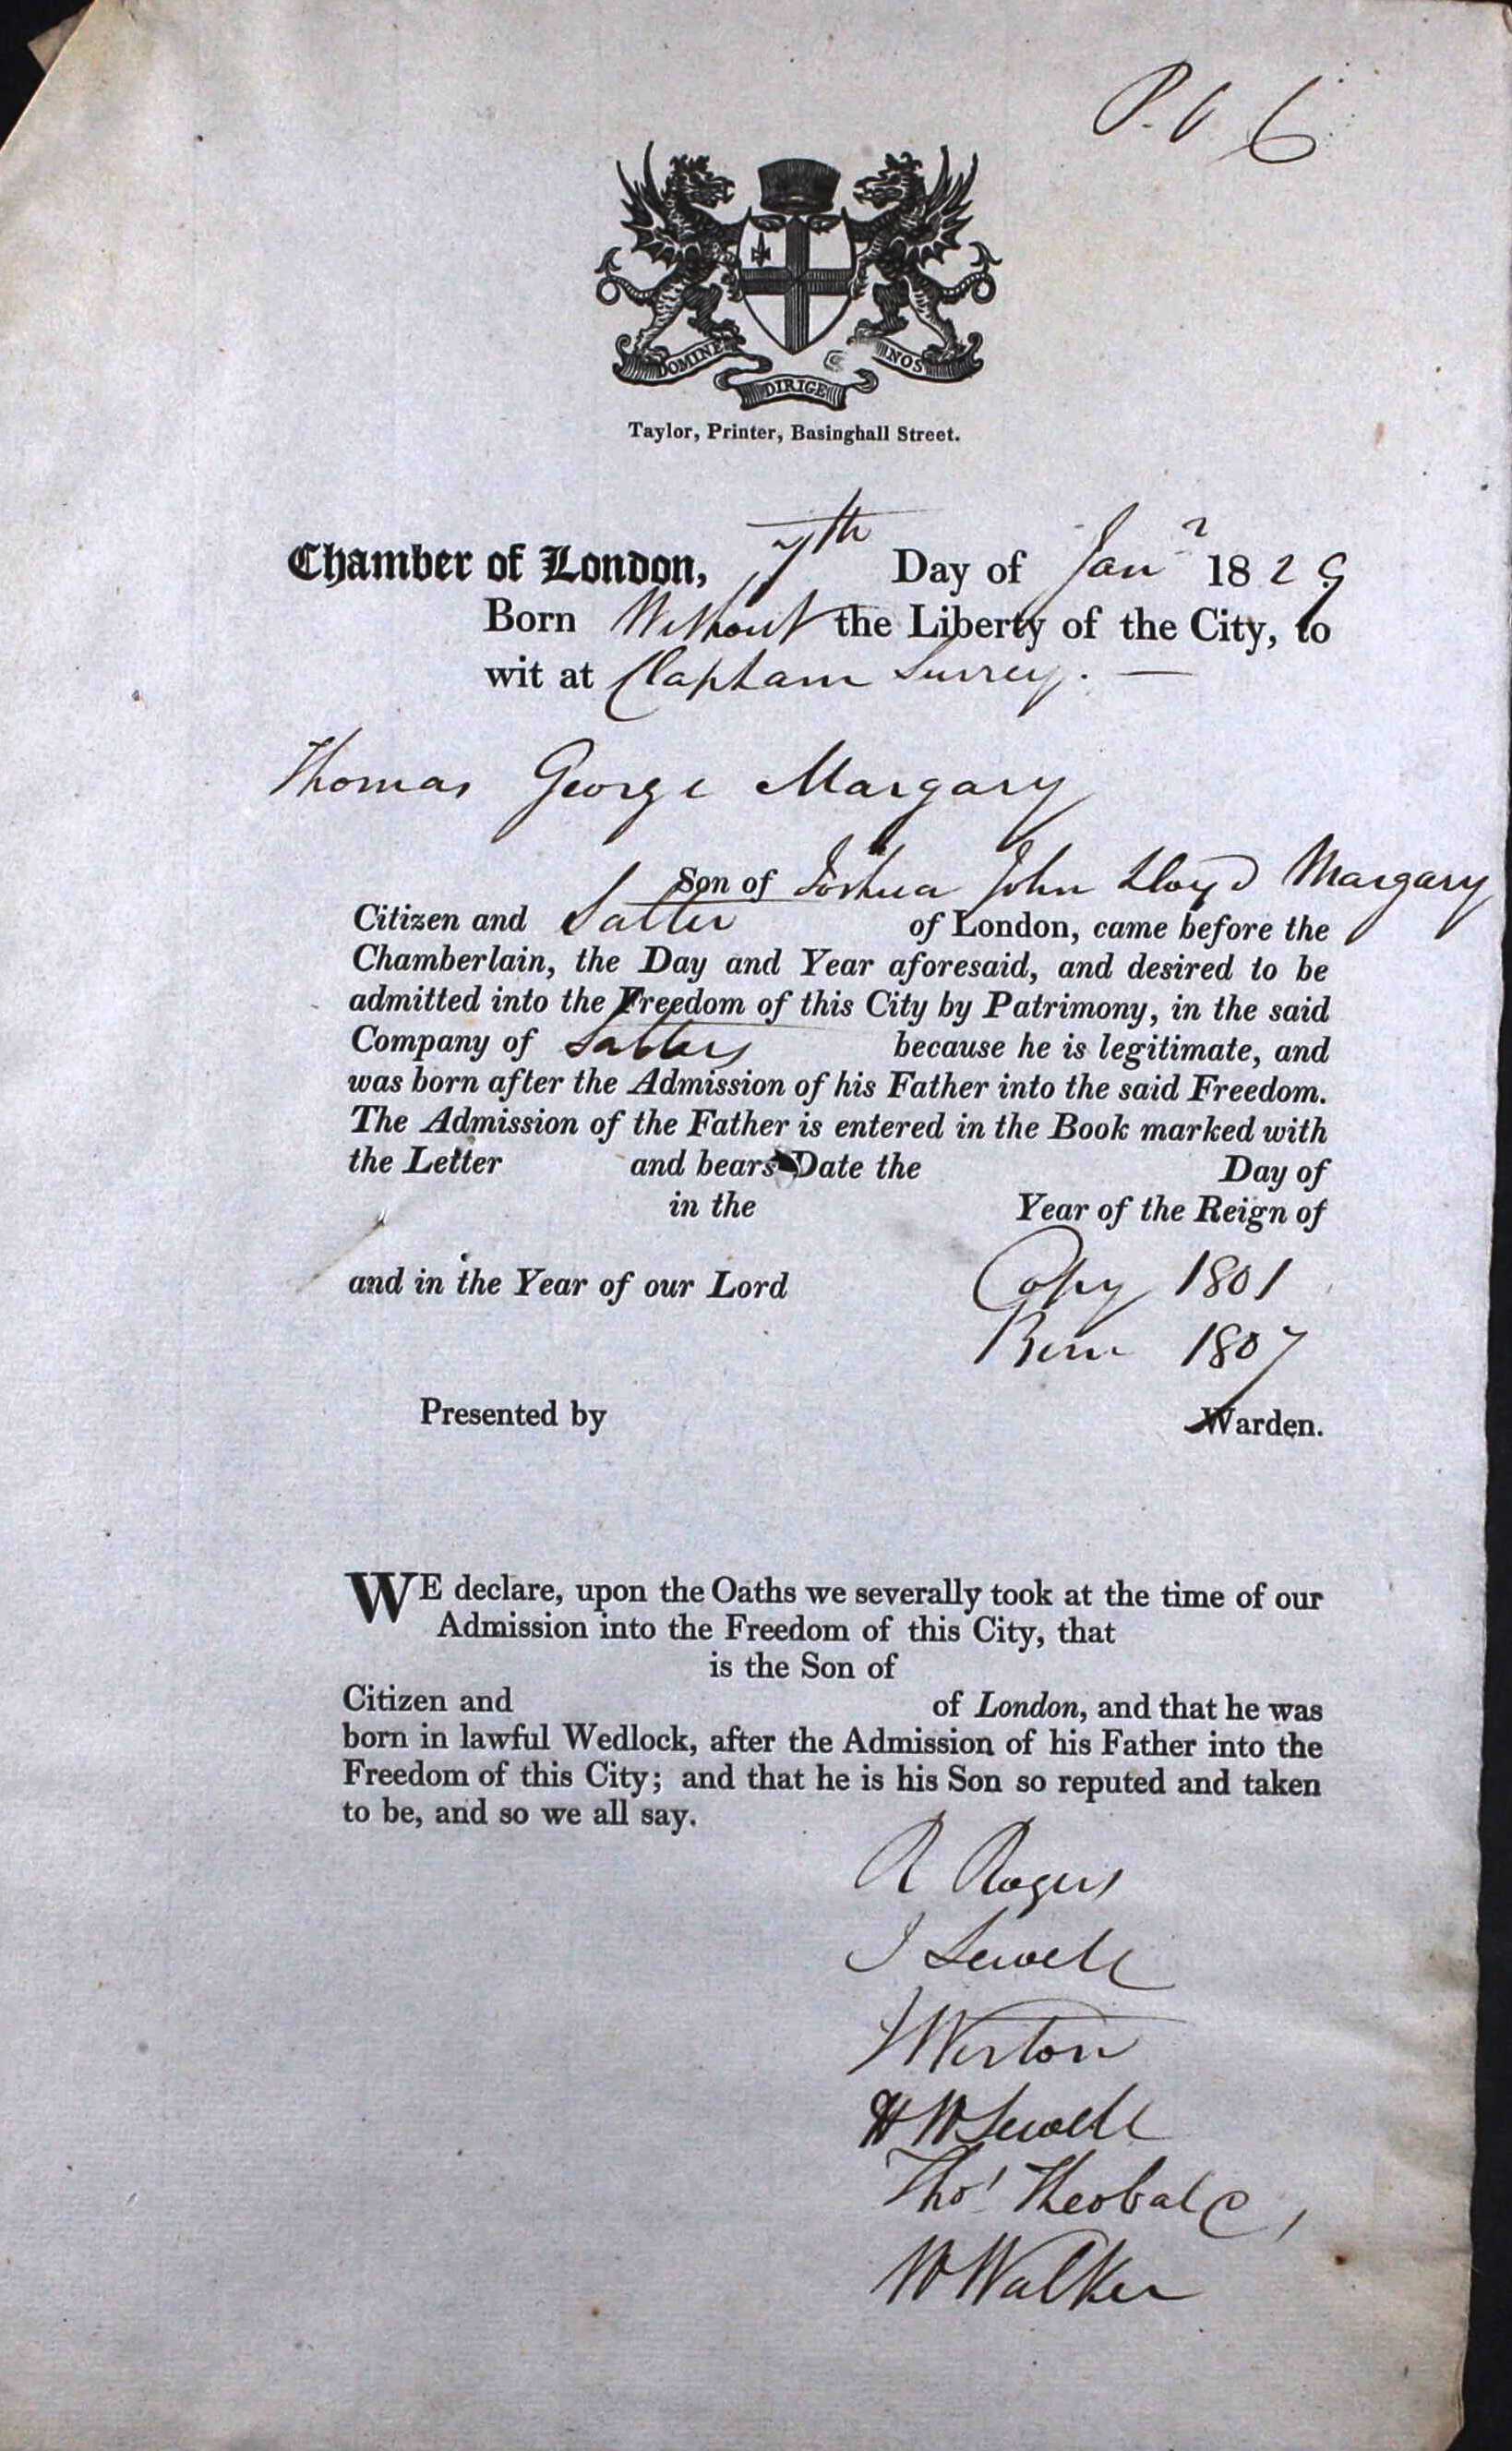 P. 6
DOMINE DIRIGE NOS
Taylor, Printer, Basinghall Street.
Chamber of London, 7th Day of Janr 1829
Born Without the Liberty of the City, to
wit at Clapham Surrey. —
Thomas George Margary
Son of Joshua John Lloyd Margary
Citizen and Salter of London, came before the
Chamberlain, the Day and Year aforesaid, and desired to be
admitted into the Freedom of this City by Patrimony, in the said
Company of Salters because he is legitimate, and
was born after the Admission of his Father into the said Freedom.
The Admission of the Father is entered in the Book marked with
the Letter and bears Date the Day of
in the Year of the Reign of
and in the Year of our Lord Copy 1801
Born 1807
Presented by Warden.
WE declare, upon the Oaths we severally took at the time of our
Admission into the Freedom of this City, that
is the Son of
Citizen and of London, and that he was
born in lawful Wedlock, after the Admission of his Father into the
Freedom of this City; and that he is his Son so reputed and taken
to be, and so we all say.
R Rogers
J Sewell
J Weston
H W Sewell
Thos Theobald
W Walker